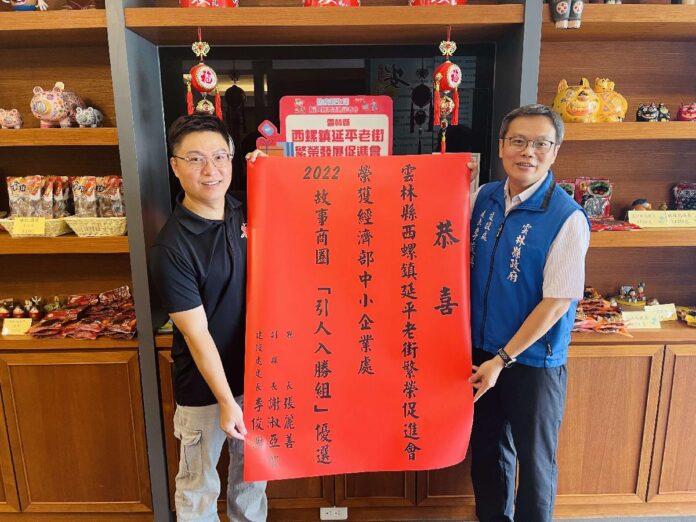 雲林縣
西螺鎮延平老街
繁榮發展促進會
恭喜
雲林縣西螺鎮延平老街繁榮促進會
榮獲經濟部中小企業處
2022
故事商圈「引人入勝組」優選
縣長張麗善
副縣長謝淑亞
建設處處長李俊興
雲林縣政府
建設處